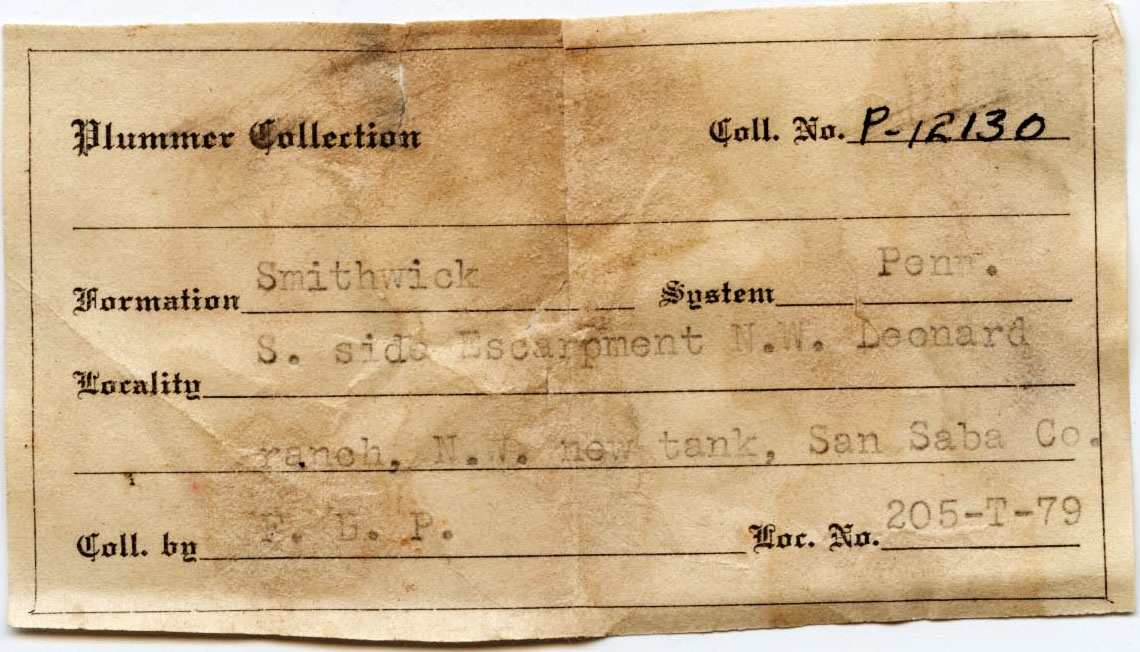 Plummer Collection Coll. No. P-12130
Formation Smithwick System Penn.
Locality S. side Escarpment N.W. Leonard
ranch, N.W. new tank, San Saba Co.
Coll. by F. B. P. Loc. No. 205-T-79